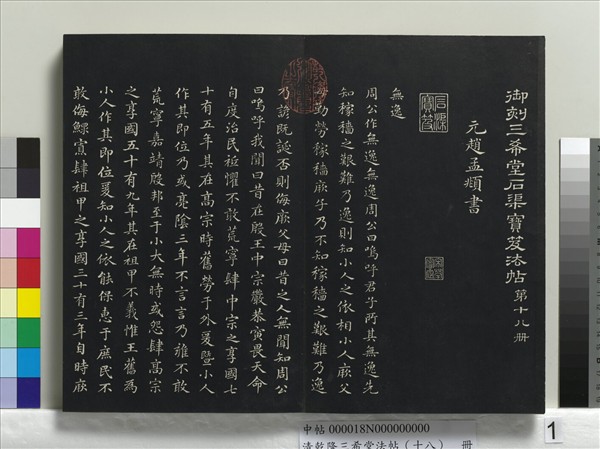 御刻三希堂石渠寶笈法帖 第十八冊
元趙孟頫書
無逸
周公作無逸無逸周公曰嗚呼君子所其無逸先
知稼穡之艱難乃逸則知小人之依相小人厥父
母勤勞稼穡厥子乃不知稼穡之艱難乃逸
乃諺既誕否則侮厥父母曰昔之人無聞知周公
曰嗚呼我聞曰昔在殷王中宗嚴恭寅畏天命
自度治民祗懼不敢荒寧肆中宗之享國七
十有五年其在高宗時舊勞于外爰暨小人
作其即位乃或亮陰三年不言言乃雍不敢
荒寧嘉靖殷邦至于小大無時或怨肆高宗
之享國五十有九年其在祖甲不義惟王舊為
小人作其即位爰知小人之依能保惠于庶民不
敢侮鰥寡肆祖甲之享國三十有三年自時厥
中帖 000018N000000000
清乾隆三希堂法帖(十八) 冊
1